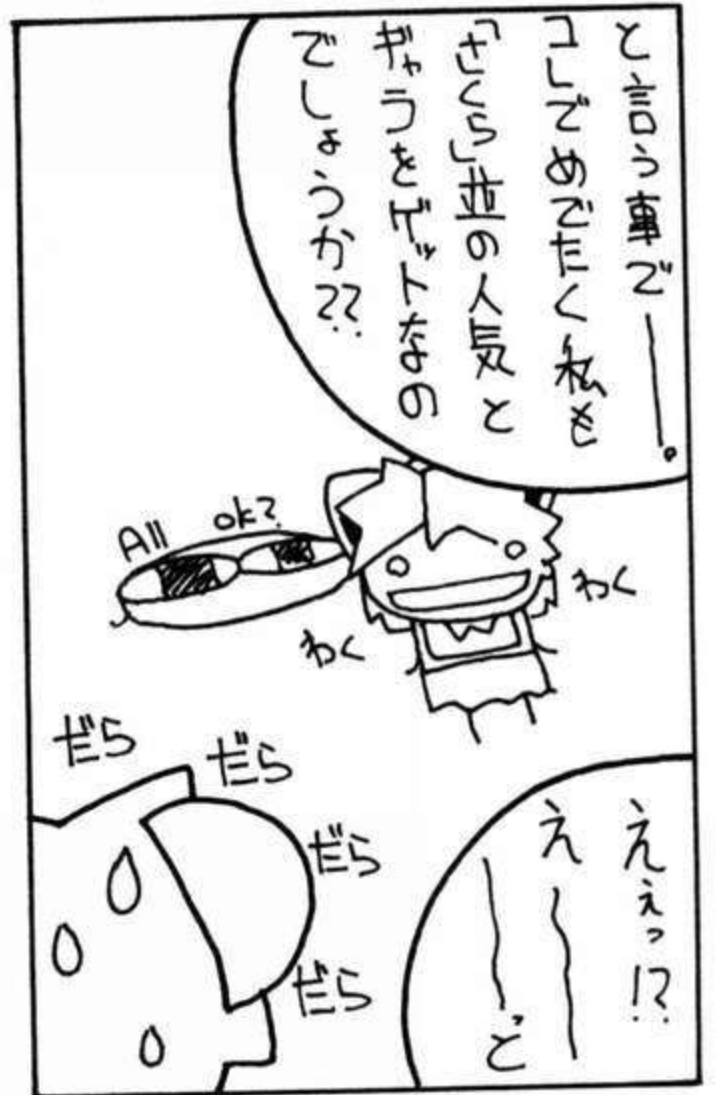 と言う事でーーー。
コレでめでたく私も
「さくら」並の人気と
ギャラをゲットなの
でしょうか??
All
ok?
わく
わく
だら
だら
だら
だら
ええっ!?
え〜〜
〜〜っと